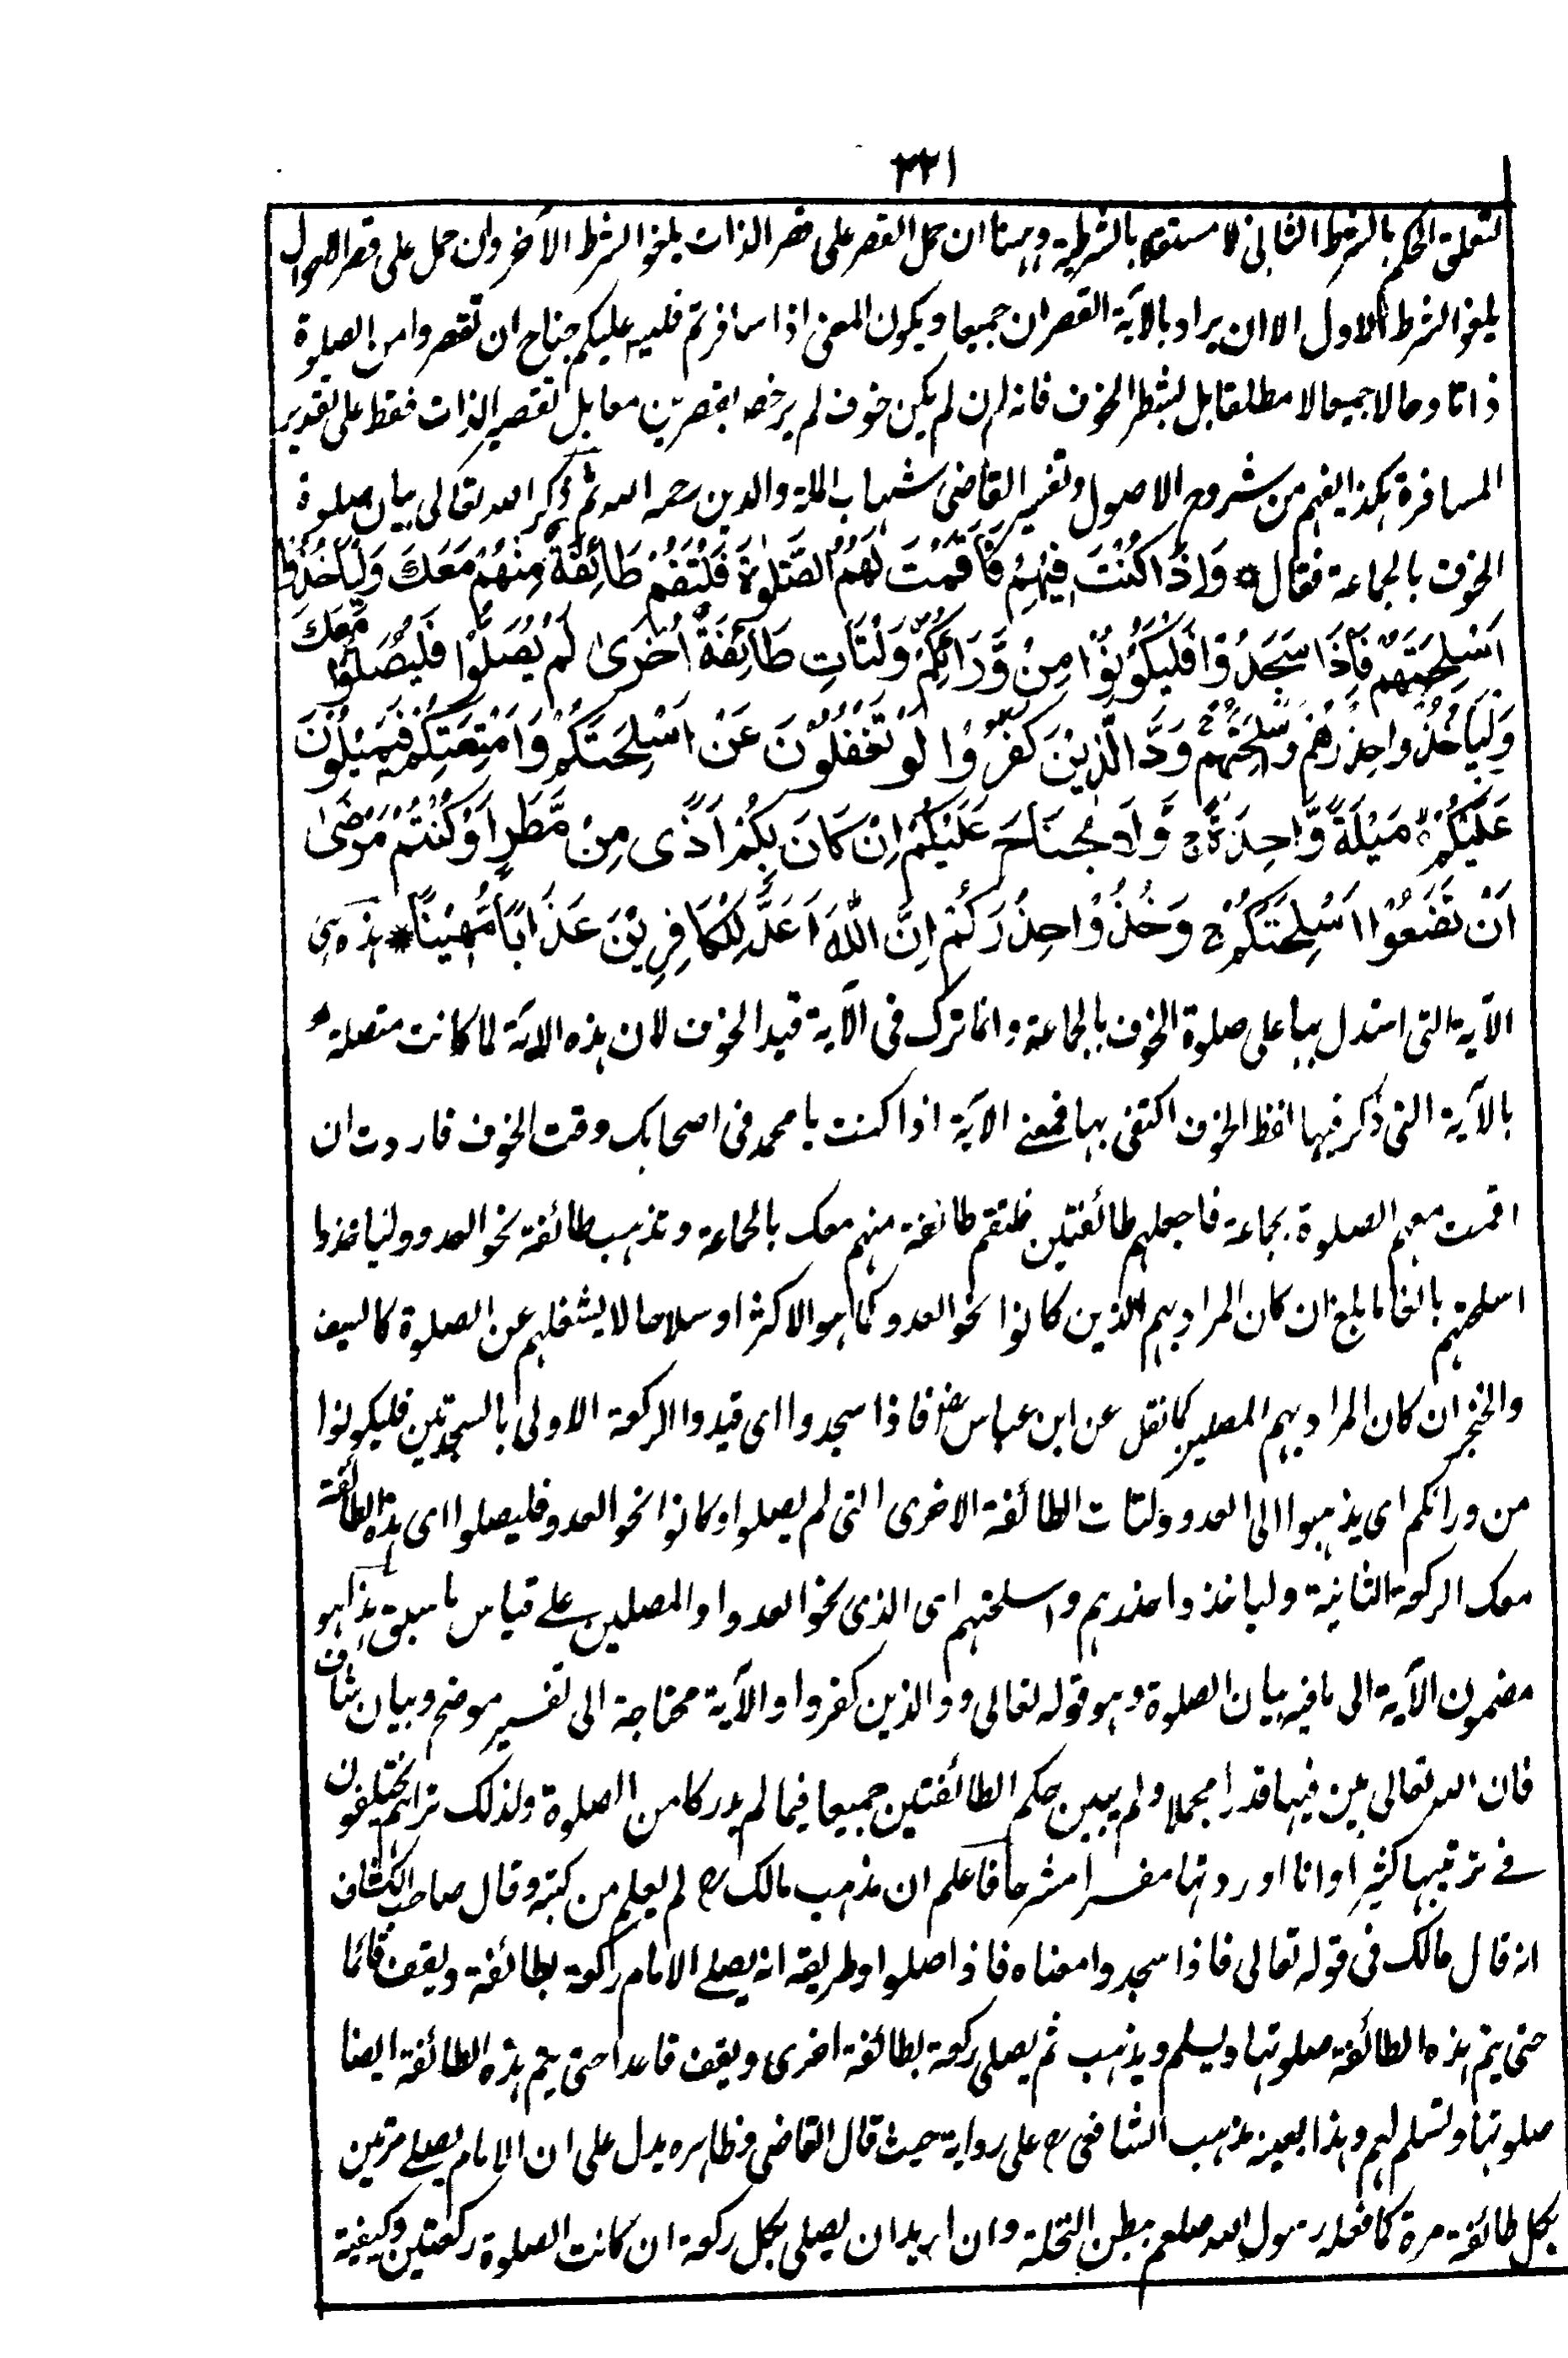 ٣٢١
لتعلق الحكم بالشرط الثانی لا مستقلا بالشرطية وههنا ان حمل القصر على قصر الذات يلغو الشرط الآخر وان حمل على قصر الاحوال
يلغو الشرط الاول الا ان يراد بالآية القصران جميعا ويكون المعنى اذا سافرتم فليس عليكم جناح ان تقصروا من الصلوة
ذاتا وحالا جميعا لا مطلقا بل بشرط الخوف فانه ان لم يكن خوف لم يرخص بقصرين معا بل بقصر الذات فقط على تقدير
المسافرة هكذا يفهم من شروح الاصول وتفسير القاضى شهاب الملة والدين رحمه الله ثم ذكر الله تعالى بيان صلوة
الخوف بالجماعة فقال * وَاِذَا كُنْتَ فِيْهِمْ فَاَقَمْتَ لَهُمُ الصَّلٰوةَ فَلْتَقُمْ طَائِفَةٌ مِنْهُمْ مَعَكَ وَلْيَاْخُذُوْا
اَسْلِحَتَهُمْ فَاِذَا سَجَدُوْا فَلْيَكُوْنُوْا مِنْ وَّرَائِكُمْ وَلْتَاْتِ طَائِفَةٌ اُخْرٰى لَمْ يُصَلُّوْا فَلْيُصَلُّوْا مَعَكَ
وَلْيَاْخُذُوْا حِذْرَهُمْ وَاَسْلِحَتَهُمْ وَدَّ الَّذِيْنَ كَفَرُوْا لَوْ تَغْفُلُوْنَ عَنْ اَسْلِحَتِكُمْ وَاَمْتِعَتِكُمْ فَيَمِيْلُوْنَ
عَلَيْكُمْ مَيْلَةً وَّاحِدَةً وَلَا جُنَاحَ عَلَيْكُمْ اِنْ كَانَ بِكُمْ اَذًى مِنْ مَّطَرٍ اَوْ كُنْتُمْ مَرْضٰى
اَنْ تَضَعُوْا اَسْلِحَتَكُمْ وَخُذُوْا حِذْرَكُمْ اِنَّ اللّٰهَ اَعَدَّ لِلْكَافِرِيْنَ عَذَابًا مُّهِيْنًا * هذه هى
الآية التى استدل بها على صلوة الخوف بالجماعة وانما ترك فى الآية قيد الخوف لان هذه الاية لما كانت متصلة
بالآية التى ذكر فيها لفظ الخوف اكتفى بها فمعنے الاية اذا كنت يا محمد فى اصحابك وقت الخوف فاردت ان
اقمت معهم الصلوة بجماعة فاجعلهم طائفتين فلتقم طائفة منهم معك بالجماعة وتذهب طائفة نحو العدو وليأخذوا
اسلحتهم بالغا ما بلغ ان كان المراد بهم الذين كانوا نحو العدو كما هو الاكثر او سلاحا لا يشغلهم عن الصلوة كالسيف
والخنجر ان كان المراد بهم المصلين كما نقل عن ابن عباس رض فاذا سجدوا اى قيدوا الركعة الاولى بالسجدتين فليكونوا
من ورائكم اى يذهبوا الى العدو ولتات الطائفة الاخرى التى لم يصلوا وكانوا نحو العدو فليصلوا اى هذه الطائفة
معك الركعة الثانية وليأخذوا حذرهم واسلحتهم اى الذى نحو العدو او المصلين علے قياس ما سبق هذا هو
مضمون الآية الى ما فيه بيان الصلوة وهو قوله تعالى ود الذين كفروا والآية محتاجة الى تفسير موضح وبيان شاف
فان الله تعالى بين فيها قدرا مجملا ولم يبين حكم الطائفتين جميعا فيما لم يدركا من الصلوة ولذلك تراهم يختلفون
فے ترتيبها كثيرا وانا اوردتها مفسرا مشرحا فاعلم ان مذهب مالك رح لم يعلم من كتبه وقال صاحب الكشاف
انه قال مالك فى قوله تعالى فاذا سجدوا معناه فاذا صلوا وطريقه انه يصلے الامام ركعة بطائفة ويقف قائما
حتى يتم هذه الطائفة صلوتها ويسلم ويذهب ثم يصلى ركعة بطائفة اخرى ويقف قاعدا حتى يتم هذه الطائفة ايضا
صلوتها وتسلم لهم وهذا بعينه مذهب الشافعى رح على رواية حيث قال القاضى وظاهره يدل على ان الامام يصلے مرتين
بكل طائفة مرة كما فعله رسول الله صلعم ببطن النخلة وان اريد ان يصلى بكل ركعة ان كانت الصلوة ركعتين وكيفية